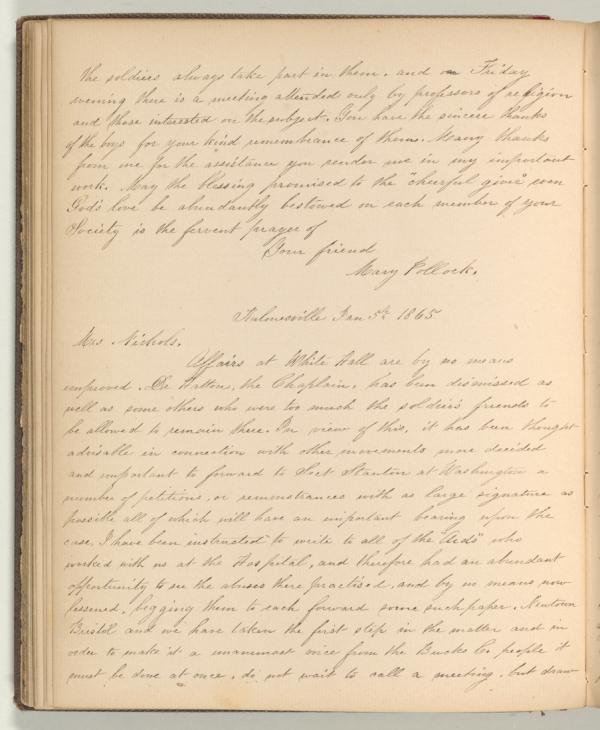 the soldiers always take part in them. and on Friday
evening there is a meeting attended only by professors of religion
and those interested on the subject. You have the sincere thanks
of the boys for your kind remembrance of them. Many thanks
from me for the assistance you render me in my important
work. May the blessing promised to the "cheerful giver" even
God's love be abundantly bestowed on each member of your
Society is the fervent prayer of
Your friend
Mary Pollock.
Hulmesville Jan 5th 1865
Mrs Nichols.
Affairs at White Hall are by no means
improved. De Hatton, the Chaplain, has been dismissed as
well as some others who were too much the soldiers' friends to
be allowed to remain there. In view of this, it has been thought
advisable in connection with other movements more decided
and important to forward to Sect Stanton at Washington a
number of petitions, or remonstrances with as large signature as
possible all of which will have an important bearing upon the
case. I have been instructed to write to all of the "Aids" who
worked with us at the Hospital, and therefore had an abundant
opportunity to see the abuses there practised, and by no means now
lessened, begging them to each forward some such paper. Newtown
Bristol and we have taken the first step in the matter and in
order to make it a unanimous voice from the Bucks Co. people it
must be done at once, do not wait to call a meeting, but draw